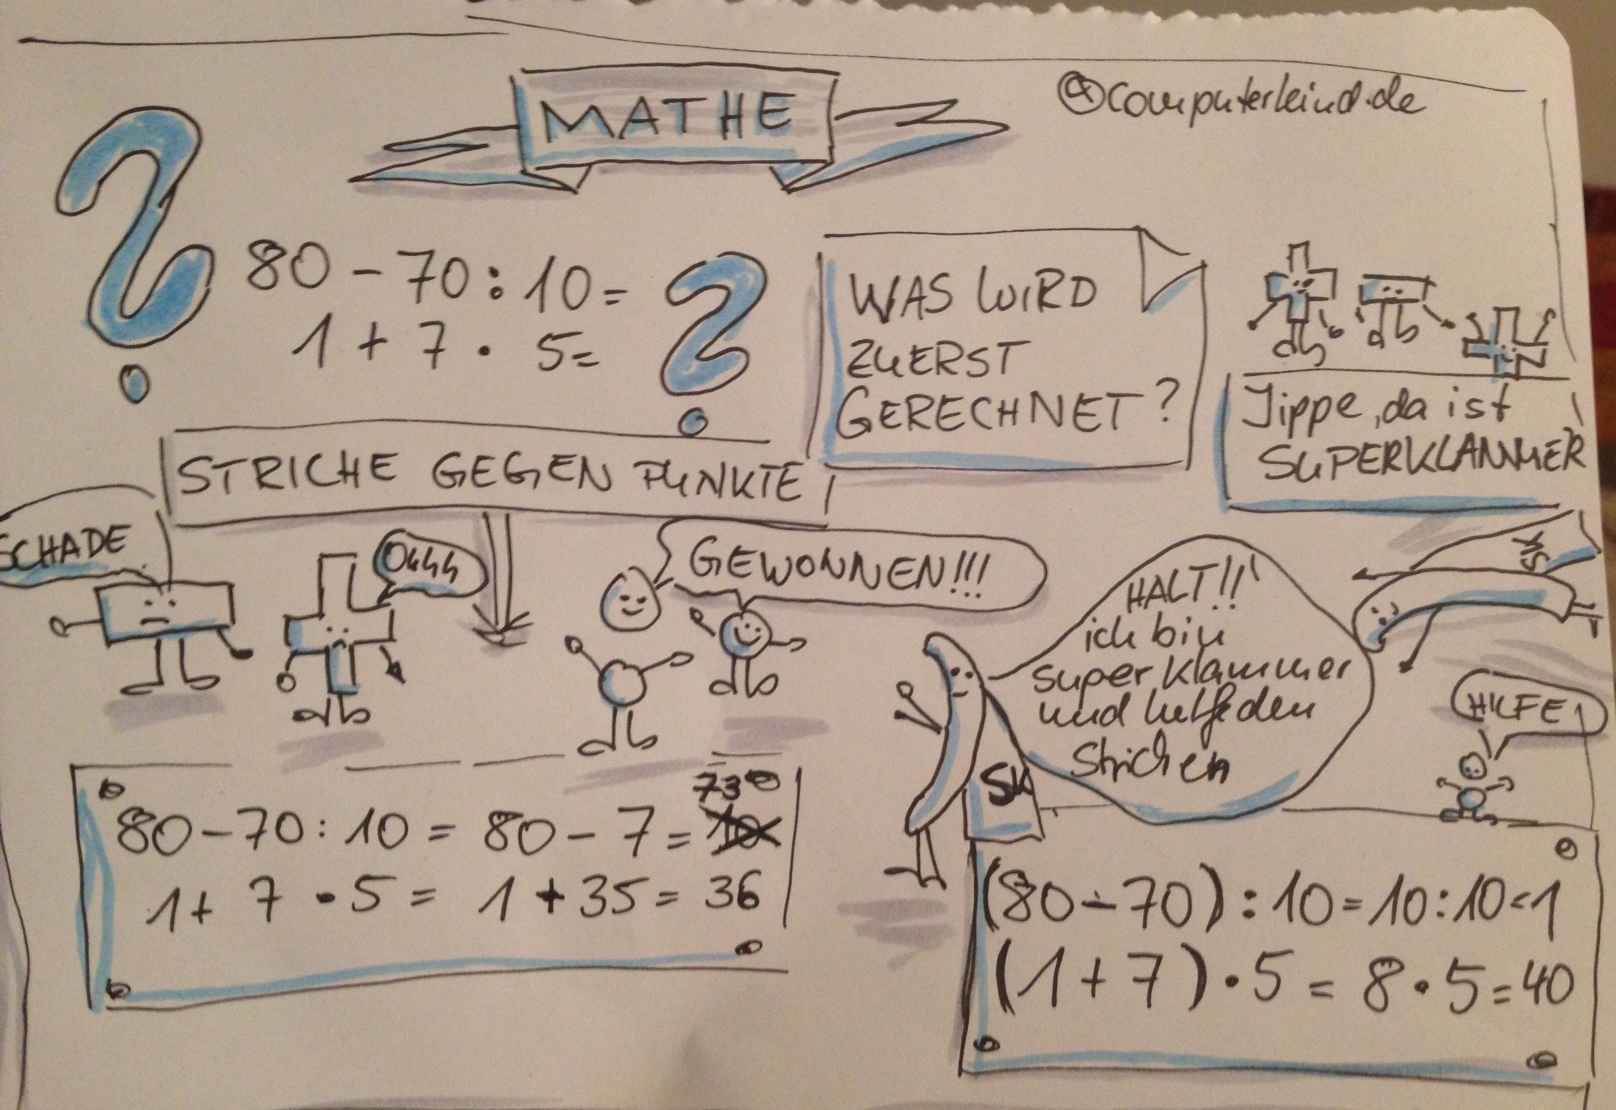 MATHE
@computerkind.de
80 - 70 : 10 =
1 + 7 · 5 =
WAS WIRD
ZUERST
GERECHNET?
Jippe, da ist
SUPERKLAMMER
STRICHE GEGEN PUNKTE
SCHADE
Ohhh
GEWONNEN!!!
HALT!!
ich bin
super klammer
und helfe den
Strichen
SK
SK
HILFE
73
80 - 70 : 10 = 80 - 7 = 10
1 + 7 · 5 = 1 + 35 = 36
(80 - 70) : 10 = 10 : 10 = 1
(1 + 7) · 5 = 8 · 5 = 40